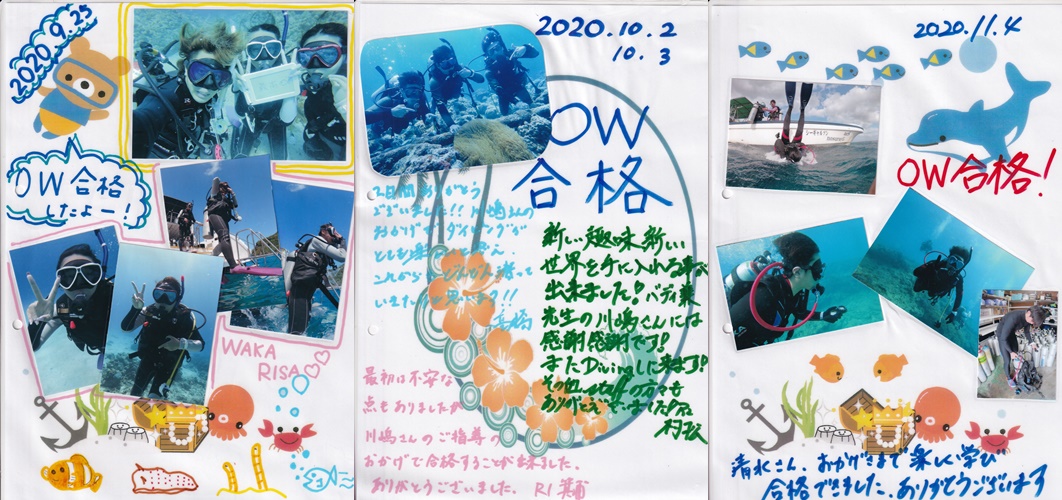 2020.9.25
OW合格
したよー!
WAKA
RISA♡
2020.10.2
10.3
OW
合格
2日間ありがとう
ございました!! 川嶋さんの
おかげでダイビングが
とても
これから
いきたいと思います!!
高橋
新しい趣味新しい
世界を手に入れる事が
出来ました!バディ兼
先生の川嶋さんには
感謝感謝です!
またDivingしに来ます!
その他の方々も
ありがとうございました
最初は不安な
点もありましたが
川嶋さんのご指導の
おかげで合格することが出来ました。
ありがとうございました。
2020.11.4
OW合格!
清水さん、おかげさまで楽しく学び
合格できました。ありがとうございます